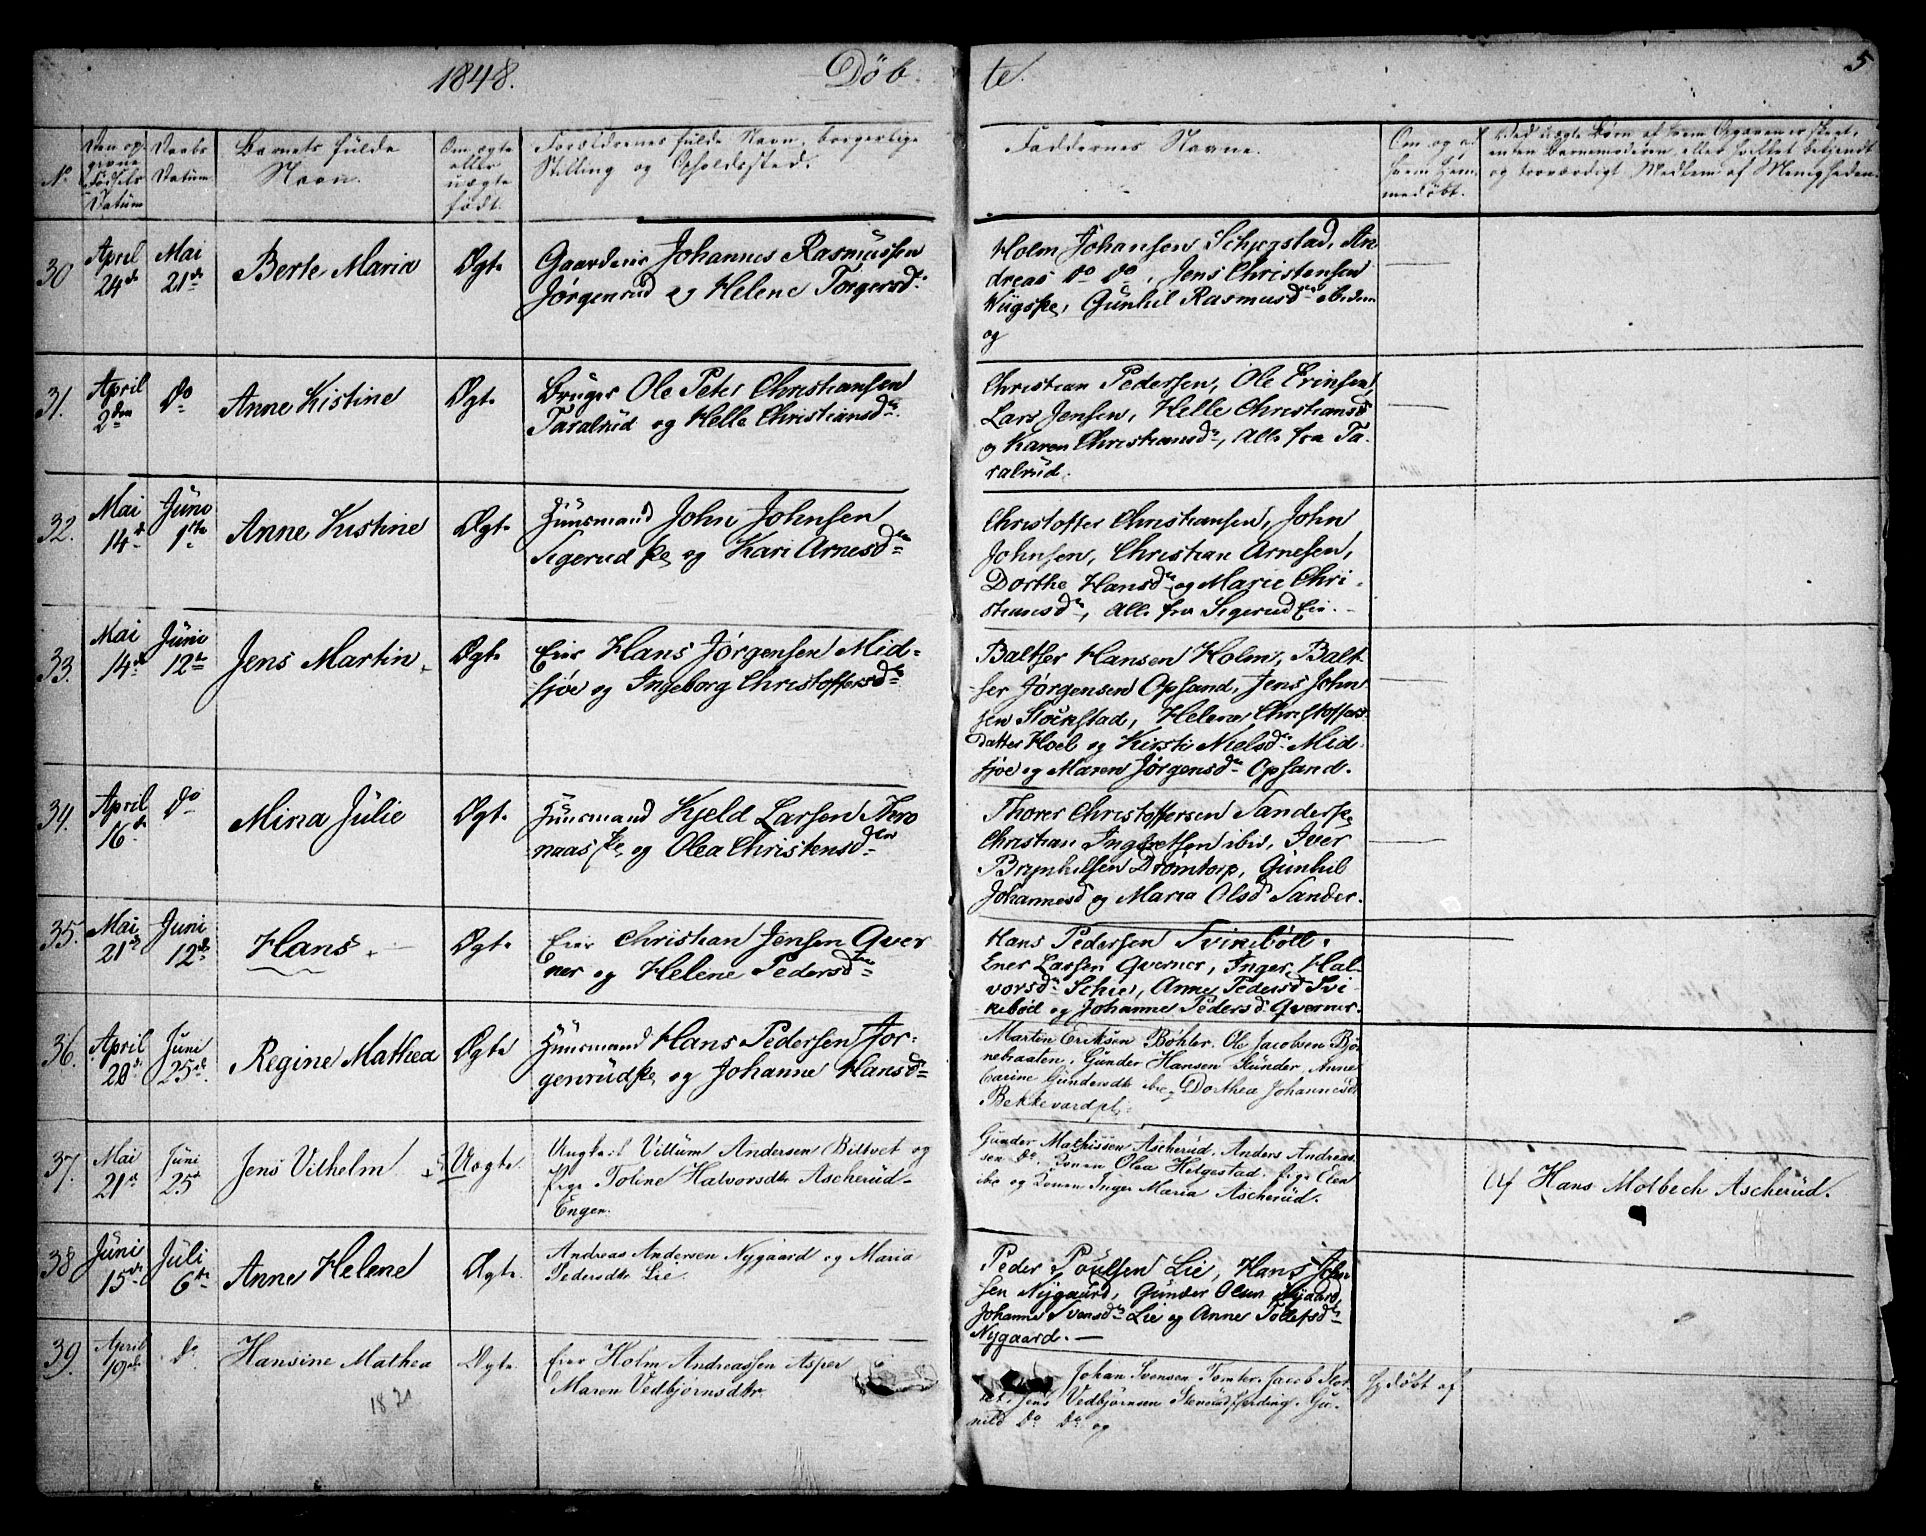 1848.
Døb
te.
5
No
Den op-
givne
Fødsels
Datum
Daabs
Datum
Barnets fulde
Navn.
Om ægte
eller
uægte
født.
Forældrenes fulde Navn, borgerlige
Stilling og Opholdssted.
Faddernes Navne.
Om og af
hvem hjem-
medøbt.
Ved uægte Børn af hvem Opgaven er skeet,
enten Barnemoderen, eller hvilket bekjendt
og troværdigt Medlem af Menigheden.
30
April
24de
Mai
21de
Berte Maria
Ægte
Gaardeier Johannes Rasmussen
Jørgenrud og Helene Torgersd.
Holm Johansen Schjegstad, An-
dreas Do Do, Jens Christensen
Wiigspe, Gunhil Rasmusd ibidem
og
31.
April
2den
Do
Anne Kistine
Ægte
Bruger Ole Peter Christiansen
Taralrud og Helle Christiansd.
Christian Pedersen, Ole Erinsen,
Lars Jensen, Helle Christiansd
og Karen Christiansd, Alle fra Ta-
ralrud.
32.
Mai
14d
Juni
1ste
Anne Kistine
Ægte
Huusmand John Johnsen
Sigerud pe og Kari Arnesd
Christoffer Christiansen, John
Johnsen, Christian Arnesen,
Dorthe Hansd og Marie Chri-
stiansd, Alle fra Sigerud Eie.
33.
Mai
14d
Juni
12te
Jens Martin
Ægte
Eier Hans Jørgensen Mid-
sjøe og Ingeborg Christoffersd
Baltser Hansen Holm, Balt-
ser Jørgensen Opsand, Jens John
sen Stockstad, Helene Christoffers
datter Hoel og Kirsti Nielsd Mid-
sjøe og Maren Jørgensd Opsand.
34.
April
16d
Do
Mina Julie
Ægte
Huusmand Kjeld Larsen Thero
naas pe og Olea Christensd
Thorer Christoffersen Sanderpe
Christian Ingbretsen ibid, Iver
Brynhilsen Drømtorp, Gunhil
Johannesd og Maria Olsd Sander.
35.
Mai
21d
Juni
12d
Hans
Ægte
Eier Christian Jensen Qver
ner og Helene Pedersd
Hans Pedersen Svinebøll
Ener Larsen Qverner, Inger Hal-
vorsd Schie, Anne Pedersd Svi
nebøl og Johanne Pedersd Qverner.
36.
April
20d
Juni
25d
Regine Mathea
Ægte
Huusmand Hans Pedersen Jør-
genrud pe og Johanne Hansd
Martin Eriksen Bøhler. Ole Jacobsen Bjø
nebraaten, Gunder Hansen Stunder, Anne
Carine Gundersdtr ibe og Dorthea Johannesdt
Bekkevardpl.
37.
Mai
21d
Juni
25
Jens Vilhelm
Uægte
Ungkarl Villum Andersen Bittvet og
Pige Toline Halvorsdtr Ascherud-
Engen.
Gunder Mathissen Ascherud. Anders Andreas-
sen Do. Konen Olea Helgestad. Pige Elen
ibe og Konen Inger Maria Ascherud.
Af Hans Molbech Ascherud.
38
Juni
15de
Juli
6te
Anne Helene
Ægte.
Andreas Andersen Nygaard og Maria
Pedersdtr Lie.
Peder Poulsen Lie, Hans John
sen Nygaard, Gunder Olsen Nygaard,
Johanne Svensd Lie og Anne Tollefsd
Nygaard.
39.
April
19de
Do
Hansine Mathea
Ægte
Eier Holm Andreassen Asper
Maren Vedbjørnsdtr.
1820
Johan Svensen Tomter. Jacob
Jens Vedbjørnsen Gu-
nild Do Do og
Hjdøbt af